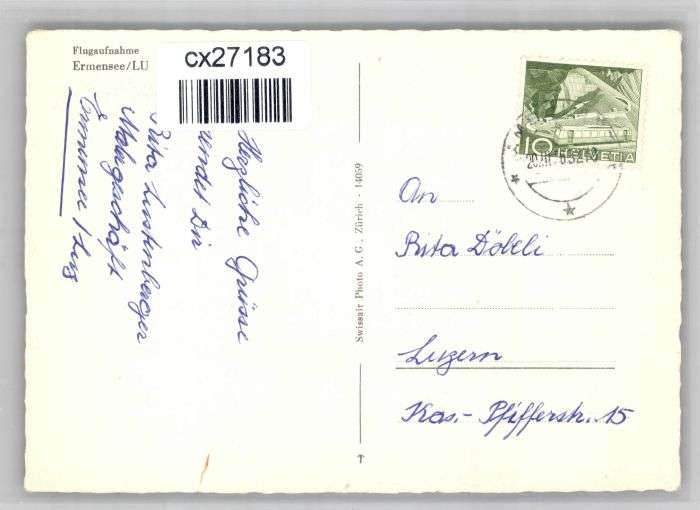 Flugaufnahme
Ermensee/LU
cx27183
Herzliche Grüsse
sendet Dir
Rita Lustenberger
Malergeschäft
Ermensee / Luz
Swissair Photo A.G. Zürich - 14059
10 HELVETIA
An
Rita Döbeli
Luzern
Kas.- Pfifferstr. 15